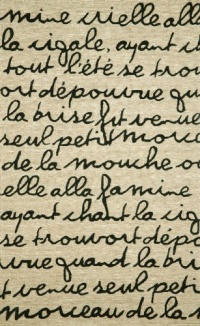 mine crielle alla
la cigale, ayant ch
tout l'été se trouv
ort dépourvue qu
la brise fut venue
seul petit morce
de la mouche ou
elle alla famine
ayant chant la cig
se trouvort dépo
vue quand la bri
t venue seul peti
morceau de la